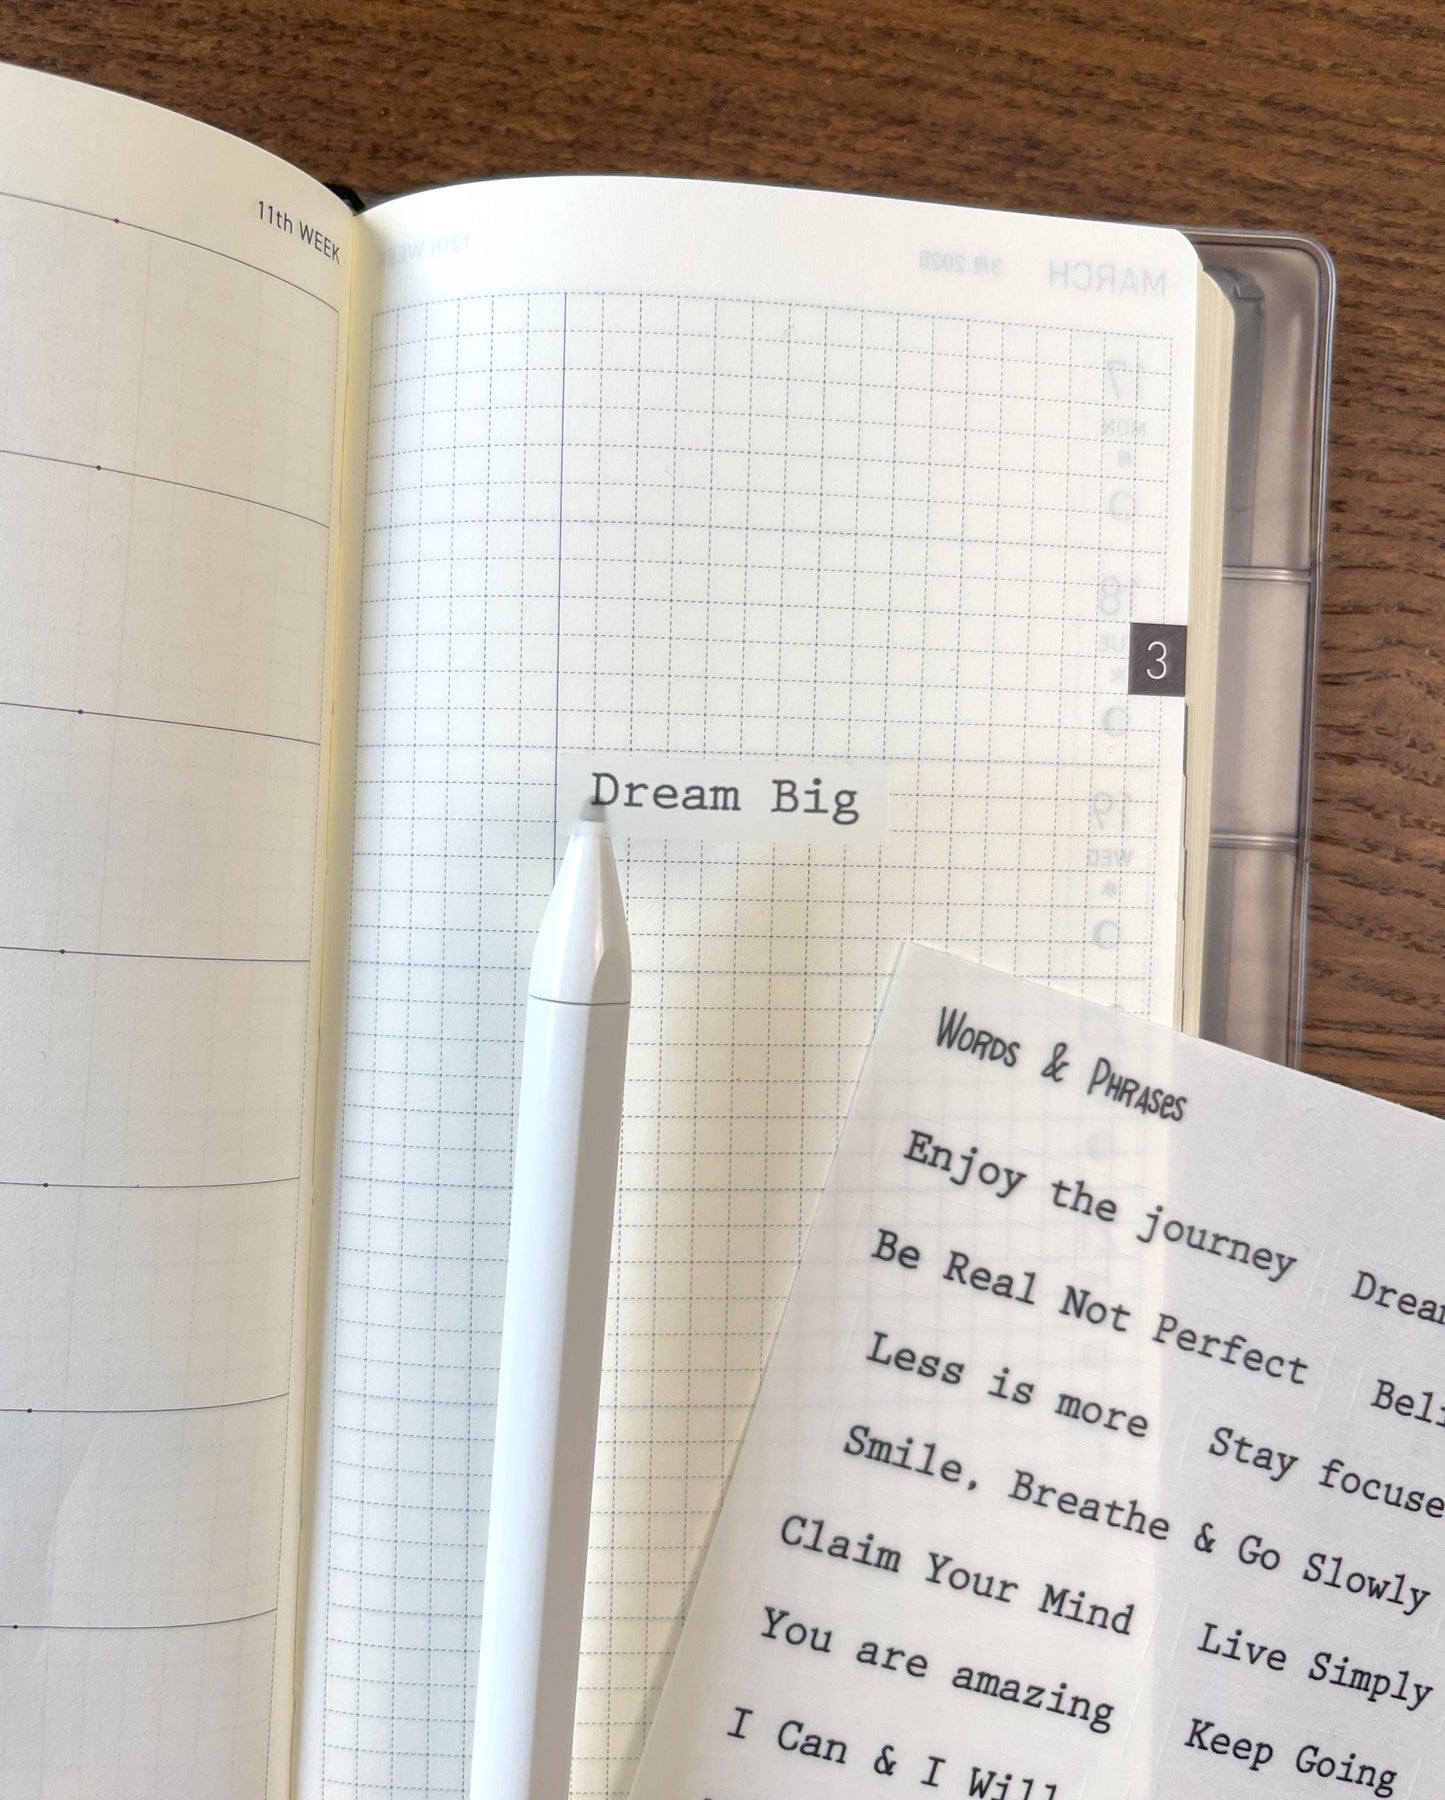 11th WEEK
12th WEEK
3月 2025
MARCH
17
MON
月
18
TUE
火
3
Dream Big
19
WED
水
Words & Phrases
Enjoy the journey
Be Real Not Perfect
Less is more
Stay focuse
Smile, Breathe & Go Slowly
Claim Your Mind
Live Simply
You are amazing
Keep Going
I Can & I Will